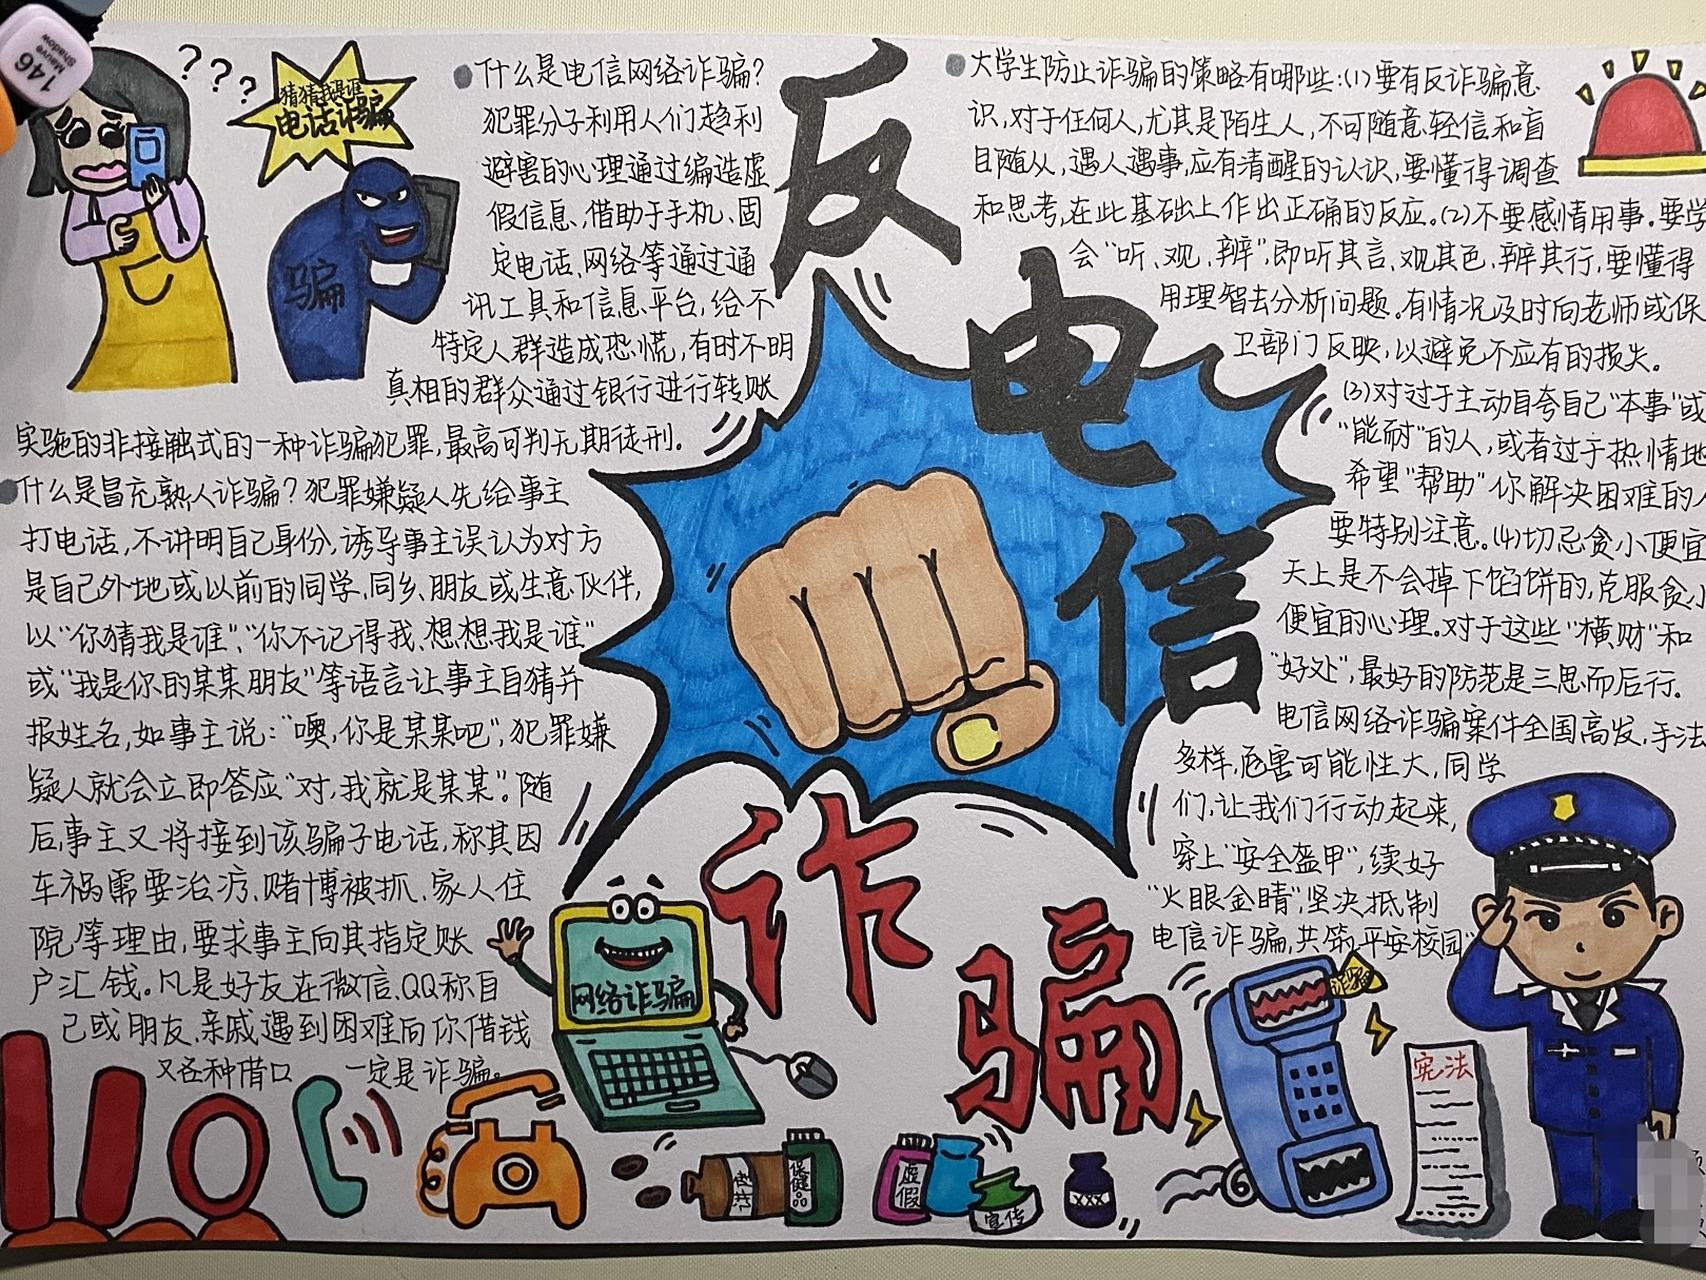 146
Mauve
Shadow
???
猜猜我是谁
电话诈骗
骗
什么是电信网络诈骗?
犯罪分子利用人们趋利
避害的心理通过编造虚
假信息、借助于手机、固
定电话、网络等通过通
讯工具和信息平台,给不
特定人群造成恐慌,有时不明
真相的群众通过银行进行转账
实施的非接触式的一种诈骗犯罪,最高可判无期徒刑。
什么是冒充熟人诈骗?犯罪嫌疑人先给事主
打电话,不讲明自己身份,诱导事主误认为对方
是自己外地或以前的同学、同乡、朋友或生意伙伴,
以“你猜我是谁”、“你不记得我、想想我是谁”
或“我是你的某某朋友”等语言让事主自猜并
报姓名,如事主说:“噢,你是某某吧”,犯罪嫌
疑人就会立即答应“对,我就是某某”。随
后,事主又将接到该骗子电话,称其因
车祸需要治疗、赌博被抓、家人住
院等理由,要求事主向其指定账
户汇钱。凡是好友在微信、QQ称自
己或朋友、亲戚遇到困难向你借钱
又各种借口 一定是诈骗。
反
电
信
诈
骗
大学生防止诈骗的策略有哪些:(1)要有反诈骗意
识,对于任何人,尤其是陌生人,不可随意轻信和盲
目随从,遇人遇事,应有清醒的认识,要懂得调查
和思考,在此基础上作出正确的反应。(2)不要感情用事。要学
会“听、观、辨”,即听其言、观其色、辨其行,要懂得
用理智去分析问题。有情况及时向老师或保
卫部门反映,以避免不应有的损失。
(3)对过于主动自夸自己“本事”或
“能耐”的人,或者过于热情地
希望“帮助”你解决困难的人
要特别注意。(4)切忌贪小便宜
天上是不会掉下馅饼的,克服贪小
便宜的心理。对于这些“横财”和
“好处”,最好的防范是三思而后行。
电信网络诈骗案件全国高发,手法
多样,危害可能性大,同学
们,让我们行动起来,
穿上“安全盔甲”,续好
“火眼金睛”,坚决抵制
电信诈骗,共筑“平安校园”
网络诈骗
诈骗
宪法
110
保健品
虚假
宣传
XXX